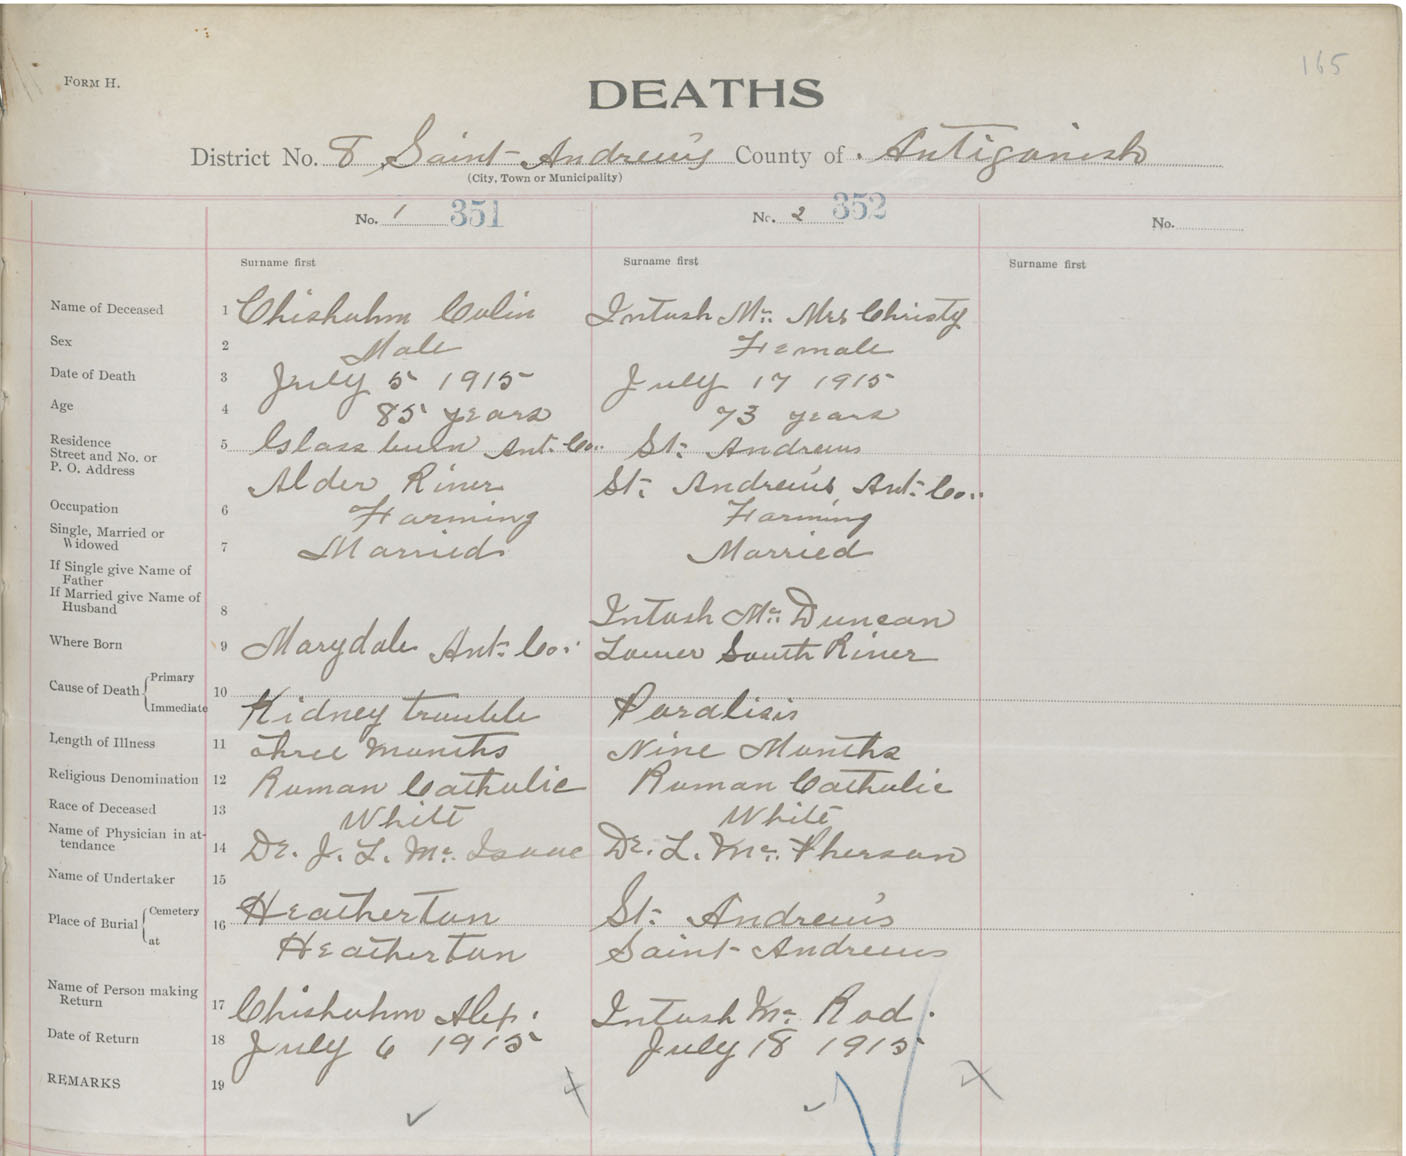 165
FORM H.
DEATHS
District No. 8 Saint Andrew's County of Antigonish
(City, Town or Municipality)
No. 1 351 No. 2 352 No.
Surname first Surname first Surname first
Name of Deceased 1 Chisholm Colin Intosh Mc. Mrs Christy
Sex 2 Male Female
Date of Death 3 July 5 1915 July 17 1915
Age 4 85 years 73 years
Residence Street and No. or P. O. Address 5 Glassburn Ant. Co.. St. Andrews
Alder River St. Andrew's Ant. Co..
Occupation 6 Farming Farming
Single, Married or Widowed 7 Married Married
If Single give Name of Father
If Married give Name of Husband 8 Intosh Mc. Duncan
Where Born 9 Marydale Ant. Co. Lower South River
Cause of Death Primary 10
Immediate Kidney trouble Paralisis
Length of Illness 11 three months Nine Months
Religious Denomination 12 Roman Catholic Roman Catholic
Race of Deceased 13 White White
Name of Physician in attendance 14 Dr. J. L. Mc. Isaac Dr. L. Mc. Pherson
Name of Undertaker 15
Place of Burial Cemetery 16 Heatherton St. Andrew's
at Heatherton Saint Andrews
Name of Person making Return 17 Chisholm Alex. Intosh Mc. Rod.
Date of Return 18 July 6 1915 July 18 1915
REMARKS 19